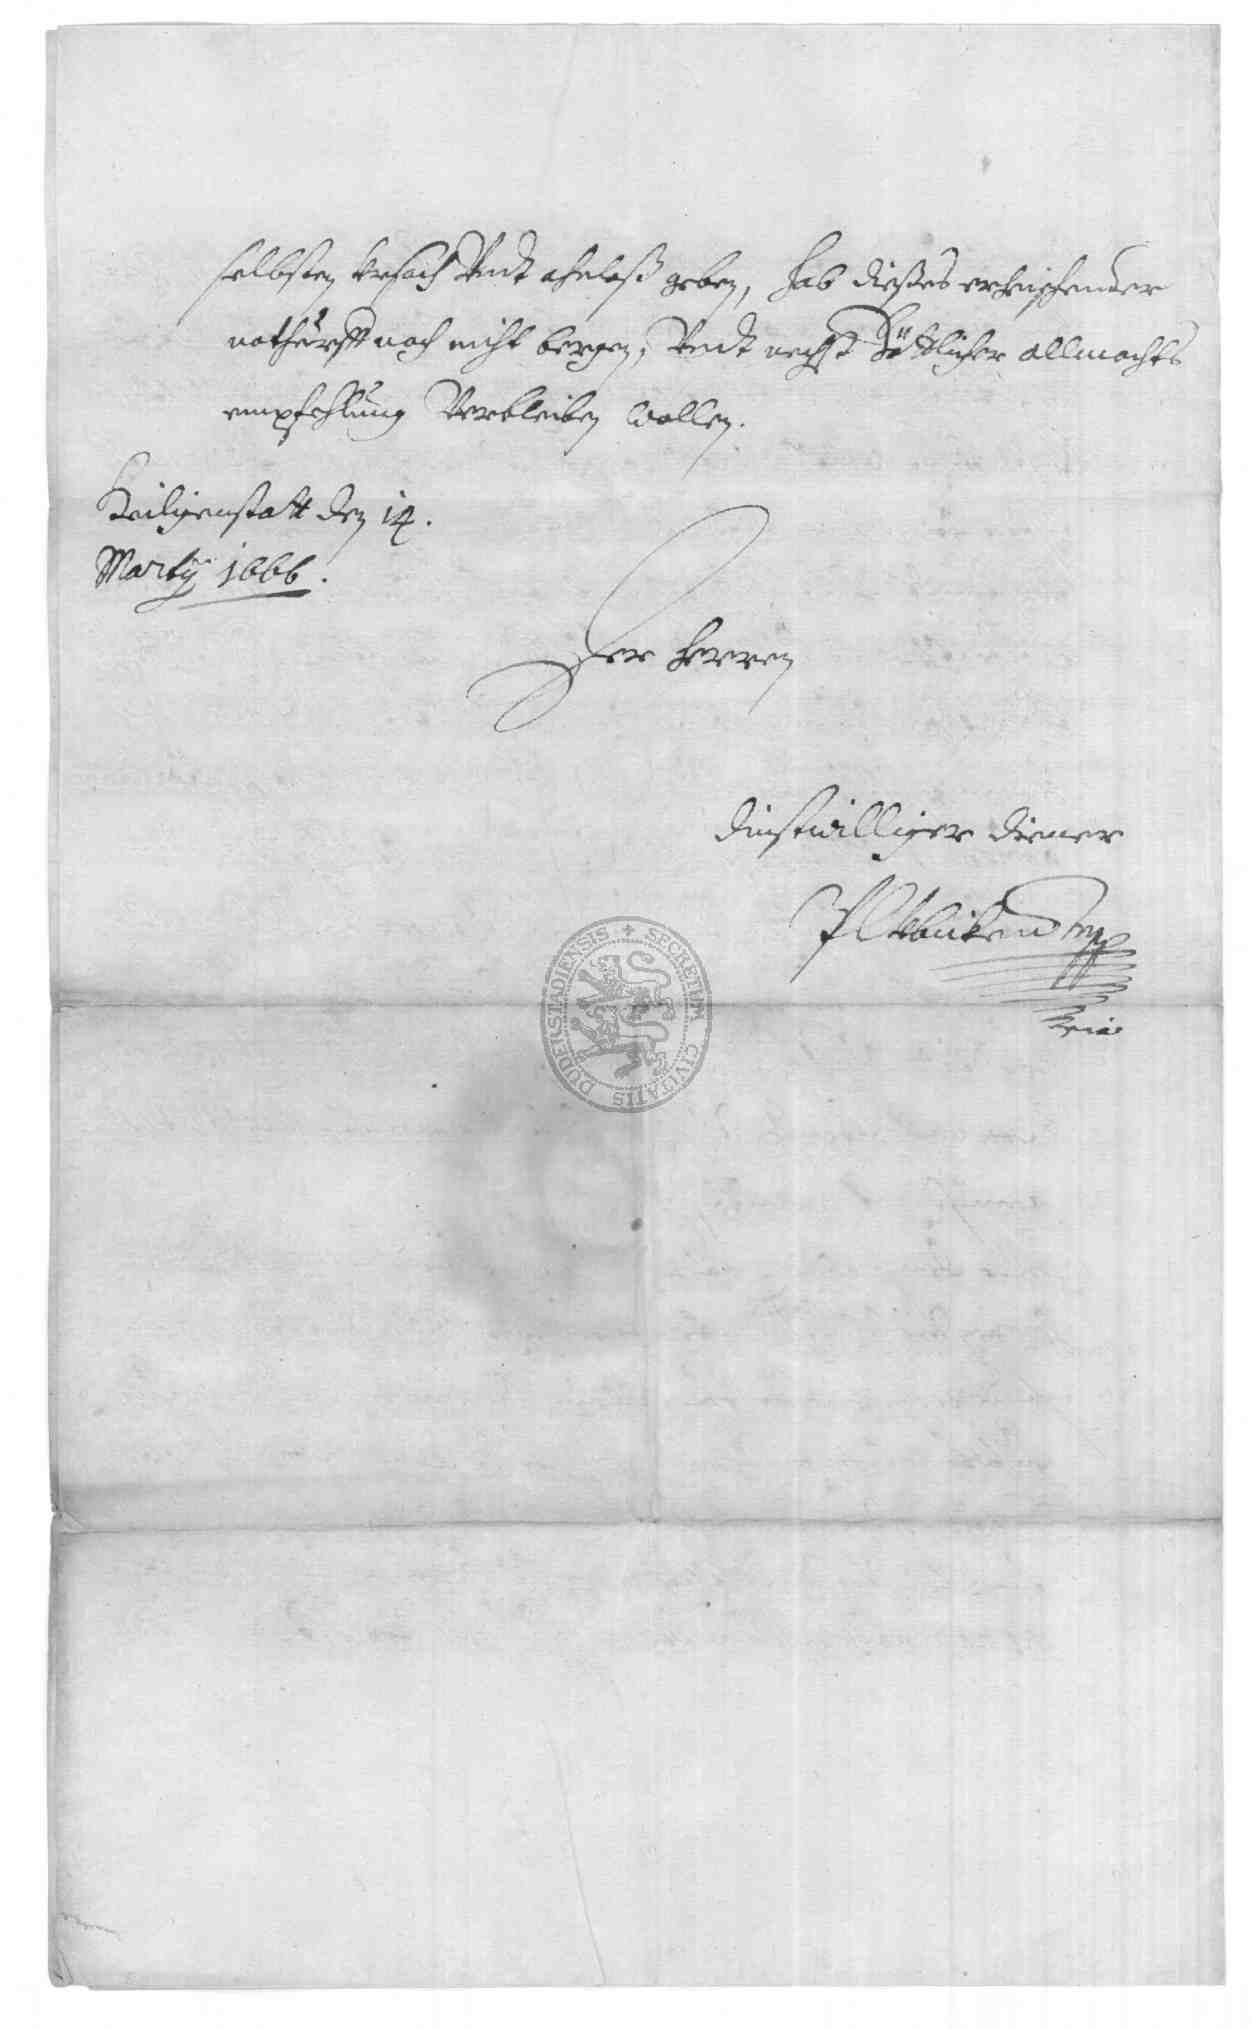 selbsten Vrsach Vndt ahnlaß geben, hab dießes erheischender
notturfft nach nicht bergen, Vndt nechst Göttlicher allmachts
empfehlung Verbleiben wollen.
Heiligenstatt den 14.
Martÿ 1666.
Der Herren
dinstwilliger diener
SECRETUM CIVITATIS DUDERSTADIENSIS